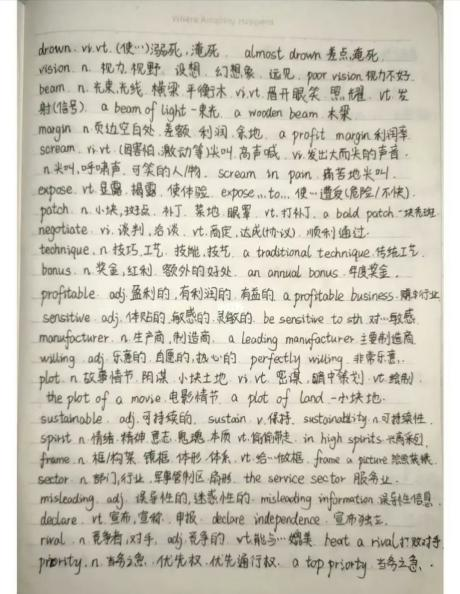 Where Amazing Happens
drown. vi.vt. (使…)溺死,淹死. almost drown 差点淹死.
vision. n. 视力.视野. 设想. 幻想象. 远见. poor vision 视力不好.
beam. n. 光束,光线. 横梁. 平衡木. vi.vt. 眉开眼笑. 照耀. vt. 发
射(信号). a beam of light 一束光. a wooden beam. 木梁
margin. n. 页边空白处. 差额. 利润. 余地. a profit margin 利润率
scream. vi.vt. (因害怕.激动等)尖叫.高声喊. vi.发出大而尖的声音.
n.尖叫,呼啸声. 可笑的人/物. scream in pain. 痛苦地尖叫.
expose. vt. 显露. 揭露. 使体验. expose...to... 使…遭受(危险/不快).
patch. n. 小块,斑点. 补丁. 菜地. 眼罩. vt.打补丁. a bald patch 一块秃斑.
negotiate. vi. 谈判,洽谈. vt. 商定,达成(协议). 顺利通过.
technique. n. 技巧,工艺. 技能,技艺. a traditional technique.传统工艺.
bonus. n. 奖金,红利. 额外的好处. an annual bonus. 年度奖金.
profitable. adj. 盈利的,有利润的. 有益的. a profitable business.
sensitive. adj. 体贴的,敏感的.灵敏的. be sensitive to sth.对…敏感.
manufacturer. n. 生产商,制造商. a leading manufacturer 主要制造商
willing. adj. 乐意的. 自愿的,热心的. perfectly willing. 非常乐意.
plot. n. 故事情节. 阴谋. 小块土地. vi.vt. 密谋. 暗中策划. vt. 绘制.
the plot of a movie.电影情节. a plot of land 一小块地.
sustainable. adj.可持续的. sustain v.保持. sustainability.n.可持续性.
spirit n. 情绪.精神.意志.鬼魂.本质 vt.偷偷带走. in high spirits.
frame. n. 框/构架. 镜框. 体形. 体系. vt.给…做框. frame a picture
sector. n. 部门,行业. 军事管制区.扇形. the service sector 服务业.
misleading. adj. 误导性的,迷惑性的. misleading information 误导性信息.
declare. vt. 宣布,宣称. 申报. declare independence. 宣布独立.
rival. n. 竞争者,对手. adj.竞争的. vt.能与…媲美. beat a rival 打败对手
priority. n. 当务之急. 优先权.优先通行权. a top priority. 当务之急.